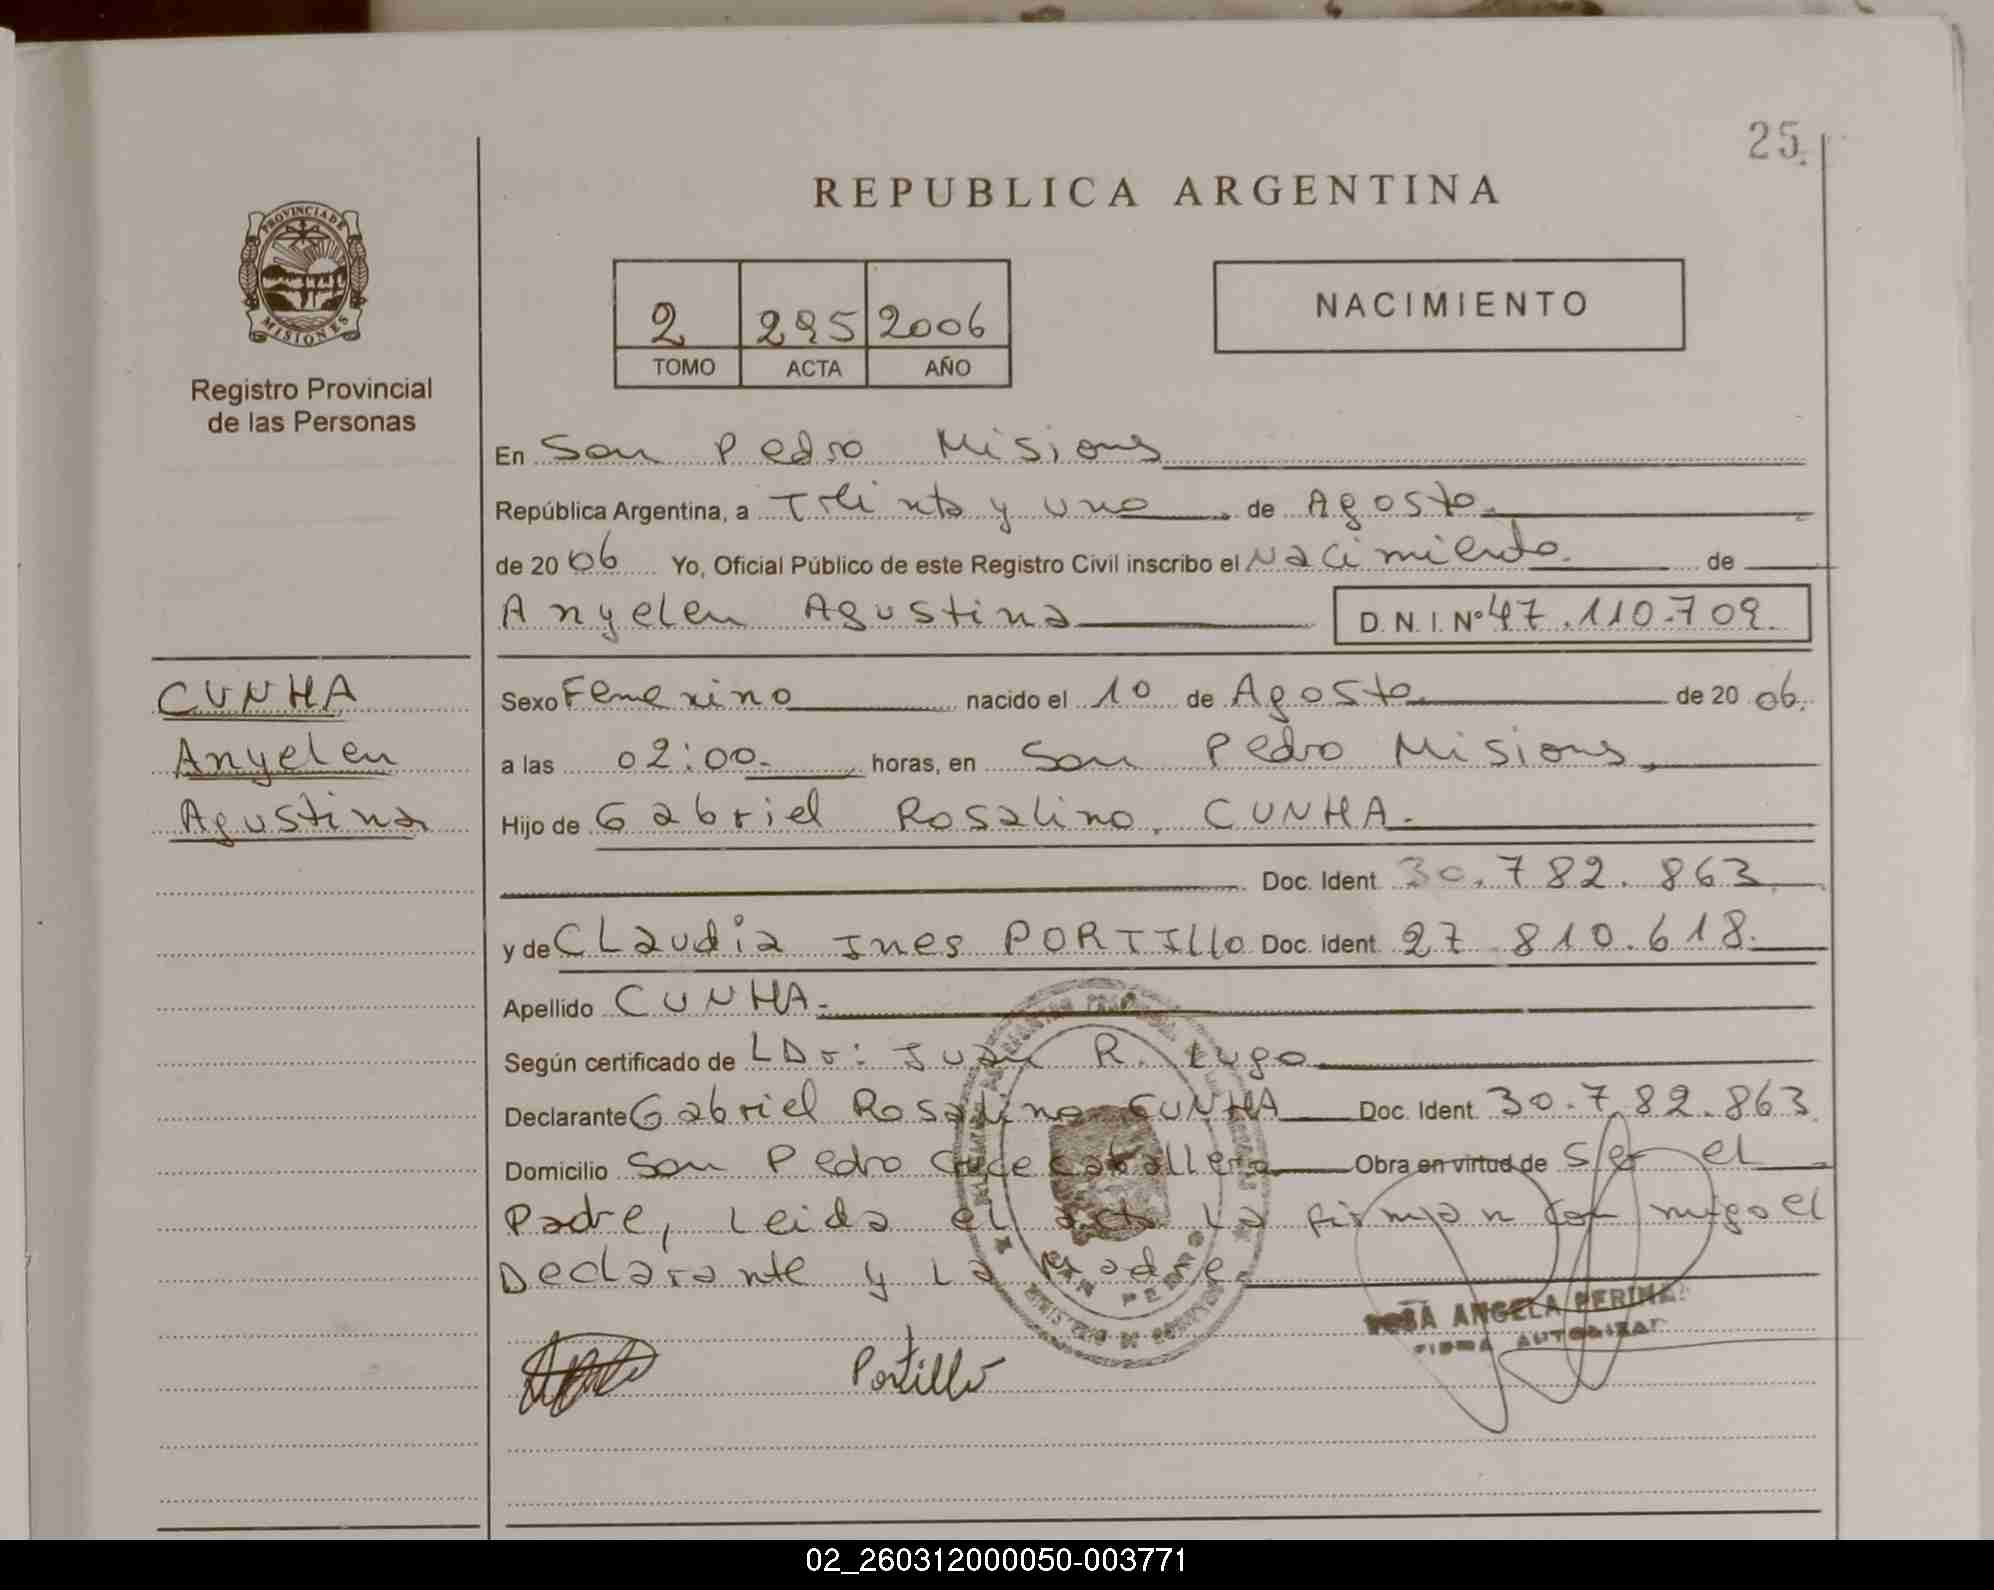 25.
REPUBLICA ARGENTINA
PROVINCIA DE
MISIONES
Registro Provincial
de las Personas
2 295 2006
TOMO ACTA AÑO
NACIMIENTO
En San Pedro Misiones
República Argentina, a Treinta y uno de Agosto
de 2006 Yo, Oficial Público de este Registro Civil inscribo el Nacimiento de
Anyelen Agustina D.N.I. Nº 47.110.709.
CUNHA
Anyelen
Agustina
Sexo Femenino nacido el 10 de Agosto de 2006.
a las 02:00 horas, en San Pedro Misiones
Hijo de Gabriel Rosalino CUNHA.
Doc. Ident. 30.782.863
y de Claudia Ines PORTIllo Doc. Ident. 27 810.618.
Apellido CUNHA.
Según certificado de LDr: Juan R. Lugo
Declarante Gabriel Rosalino CUNHA Doc. Ident. 30.782.863
Domicilio San Pedro Cruce Caballero Obra en virtud de Ser el
Padre, Leida el acta La firman con migo el
Declarante y La Madre
SAN PEDRO
Portillo
ROSA ANGELA
FIRMA AUTORIZADA
02_260312000050-003771